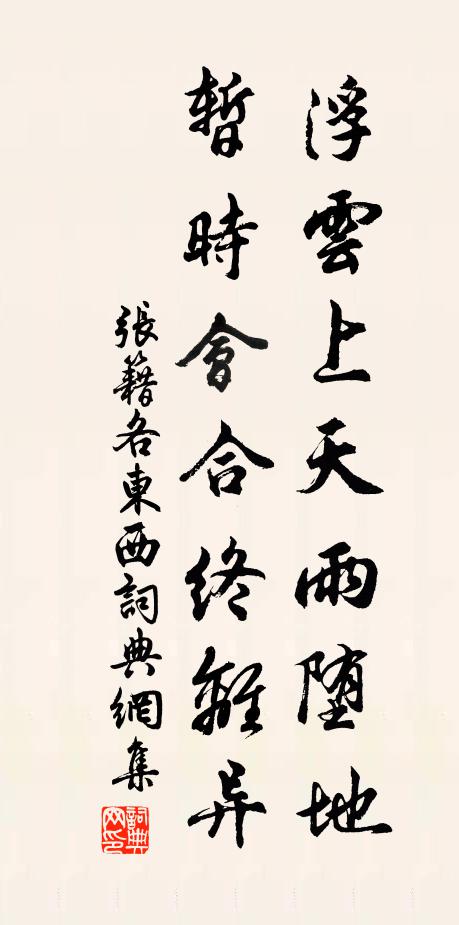 浮雲上天雨堕地
暫時會合終離异
張籍各東西詞典網集
詞典網印